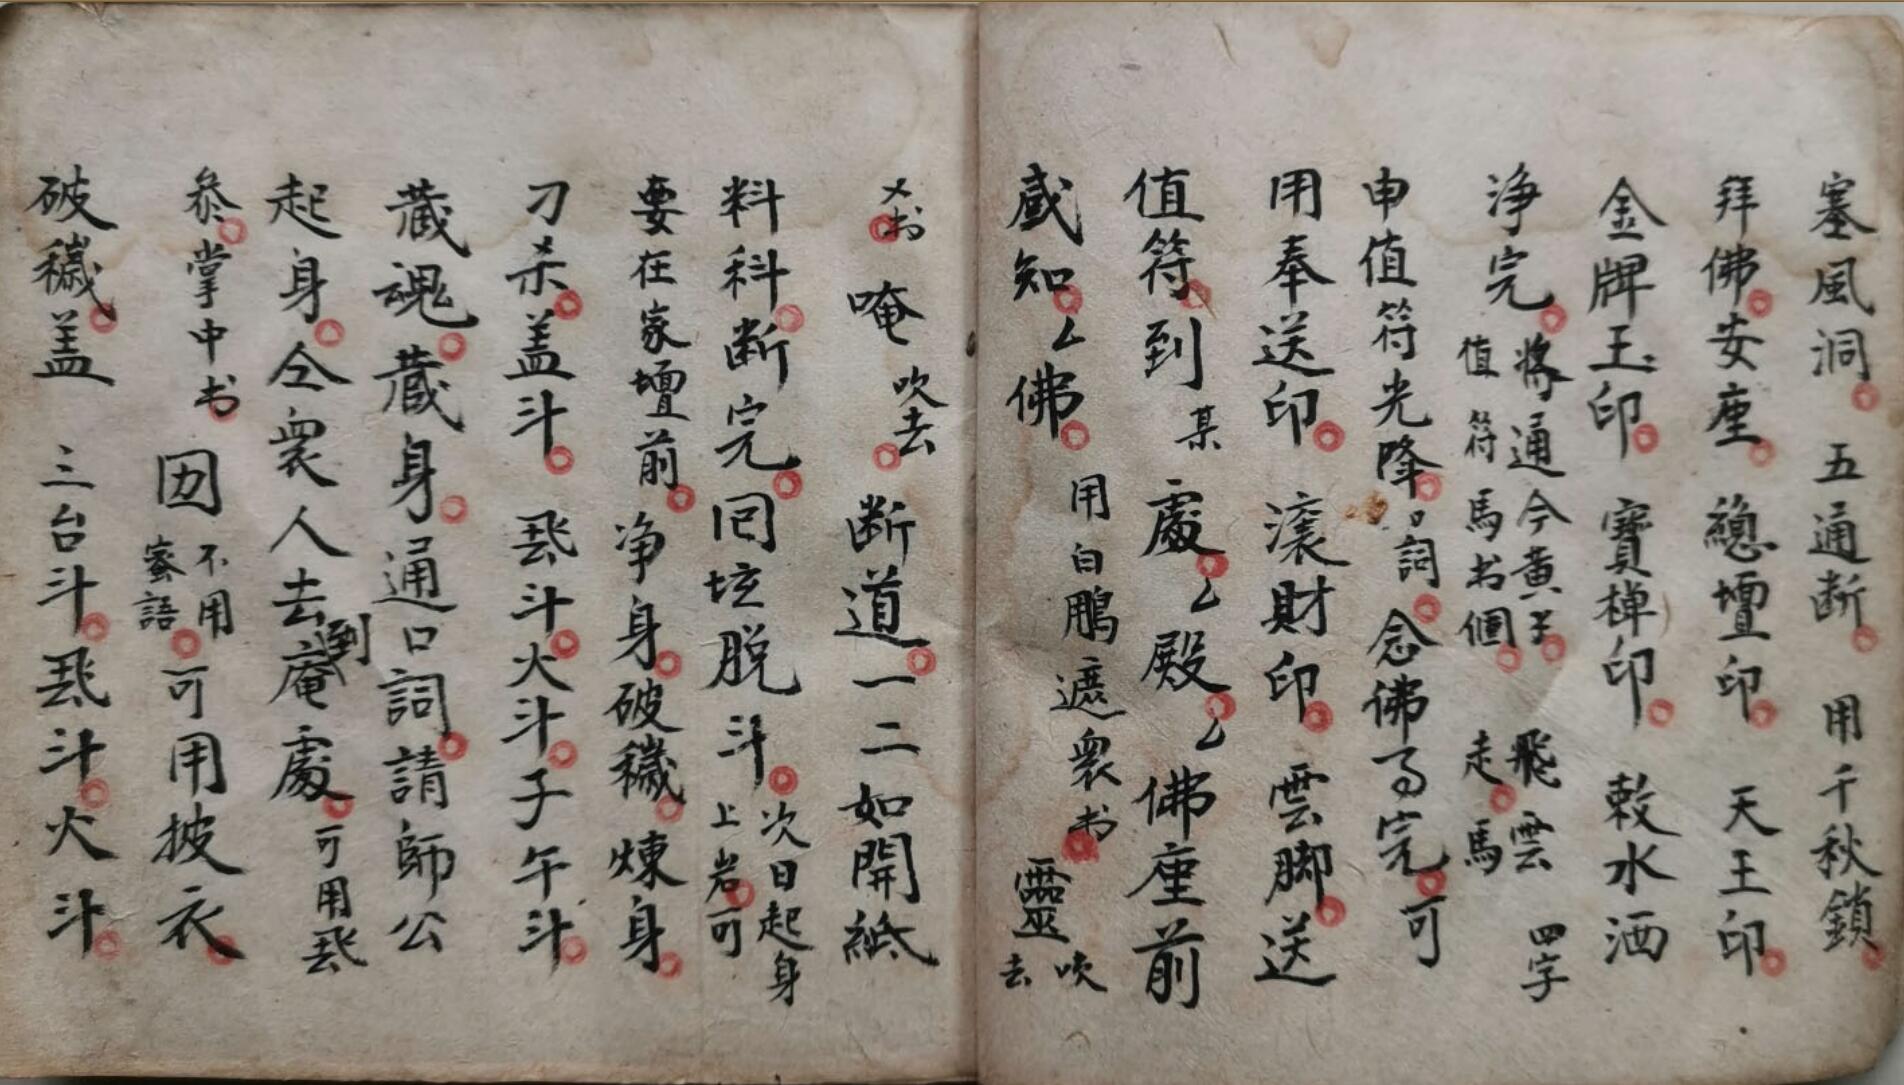 塞風洞 五通断 用千秋鎖
拜佛安座 總壇印 天王印
金牌王印 寶樿印 敕水洒
净完 將通今黄 飛雲 四字
值符馬书個 走馬
申值符光降 詞 念佛 完可
用奉送印 滚財印 雲脚送
值符到 某 處 殿 佛座前
感知 佛 用白鵬遮衆书 靈 吹去
书 唵 吹去 断道一二如開紙
料科断完回坛脱斗 次日起身
上岩可
要在家壇前净身破穢煉身
刁杀盖斗 飛斗火斗子午斗
藏魂藏身通口詞請師公
起身仝衆人去到庵處 可用飛
叅掌中书 因 不用
蜜語 可用披衣
破穢盖 三台斗飛斗火斗